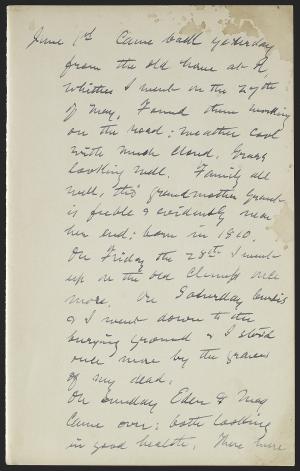 June 1st Came back yesterday
from the old home at R,
whither I went on the 27th
of May. Found them working
on the road; weather cool
with much cloud. Grass
looking well. Family all
well, tho' grandmother Grant
is feeble & evidently near
her end; born in 1810.
On Friday the 28th I went
up on the old Clump once
more. On Saturday Curtis
& I went down to the
burying ground & I stood
once more by the graves
of my dead.
On Sunday Eden & Mag
came over; both looking
in good health. There were